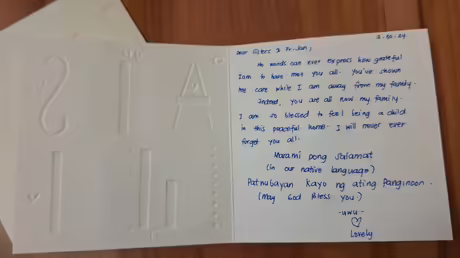 Dear Sisters & Fr. Jan,
No words can ever express how grateful
I am to have met you all. You've shown
me care while I am away from my family.
Indeed, you are all now my family.
I am so blessed to feel being a child
in this peaceful home. I will never ever
forget you all.
Marami pong salamat
(in our native language)
Patnubayan kayo ng ating Panginoon.
(May God Bless you)
-uwu-
Lovely